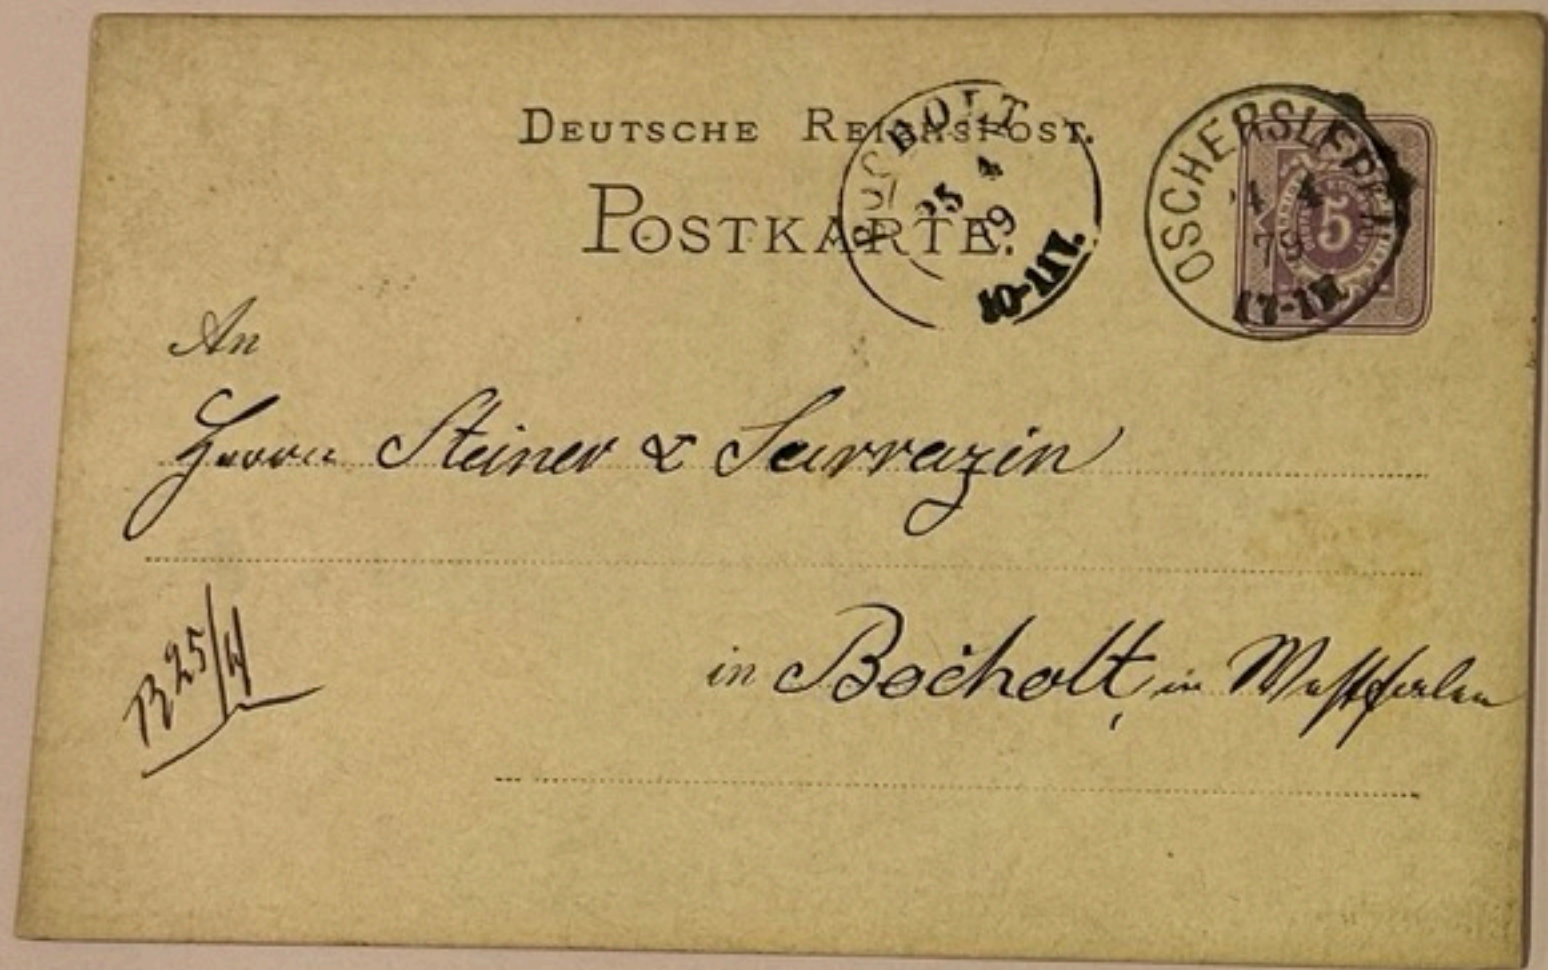 DEUTSCHE REICHSPOST.
POSTKARTE.
BOCHOLT
25 4
79
10-11V.
OSCHERSLEBEN
4
79
5
An
Herrn Steiner & Sarrazin
in Bocholt, in Westfalen
B 25/4